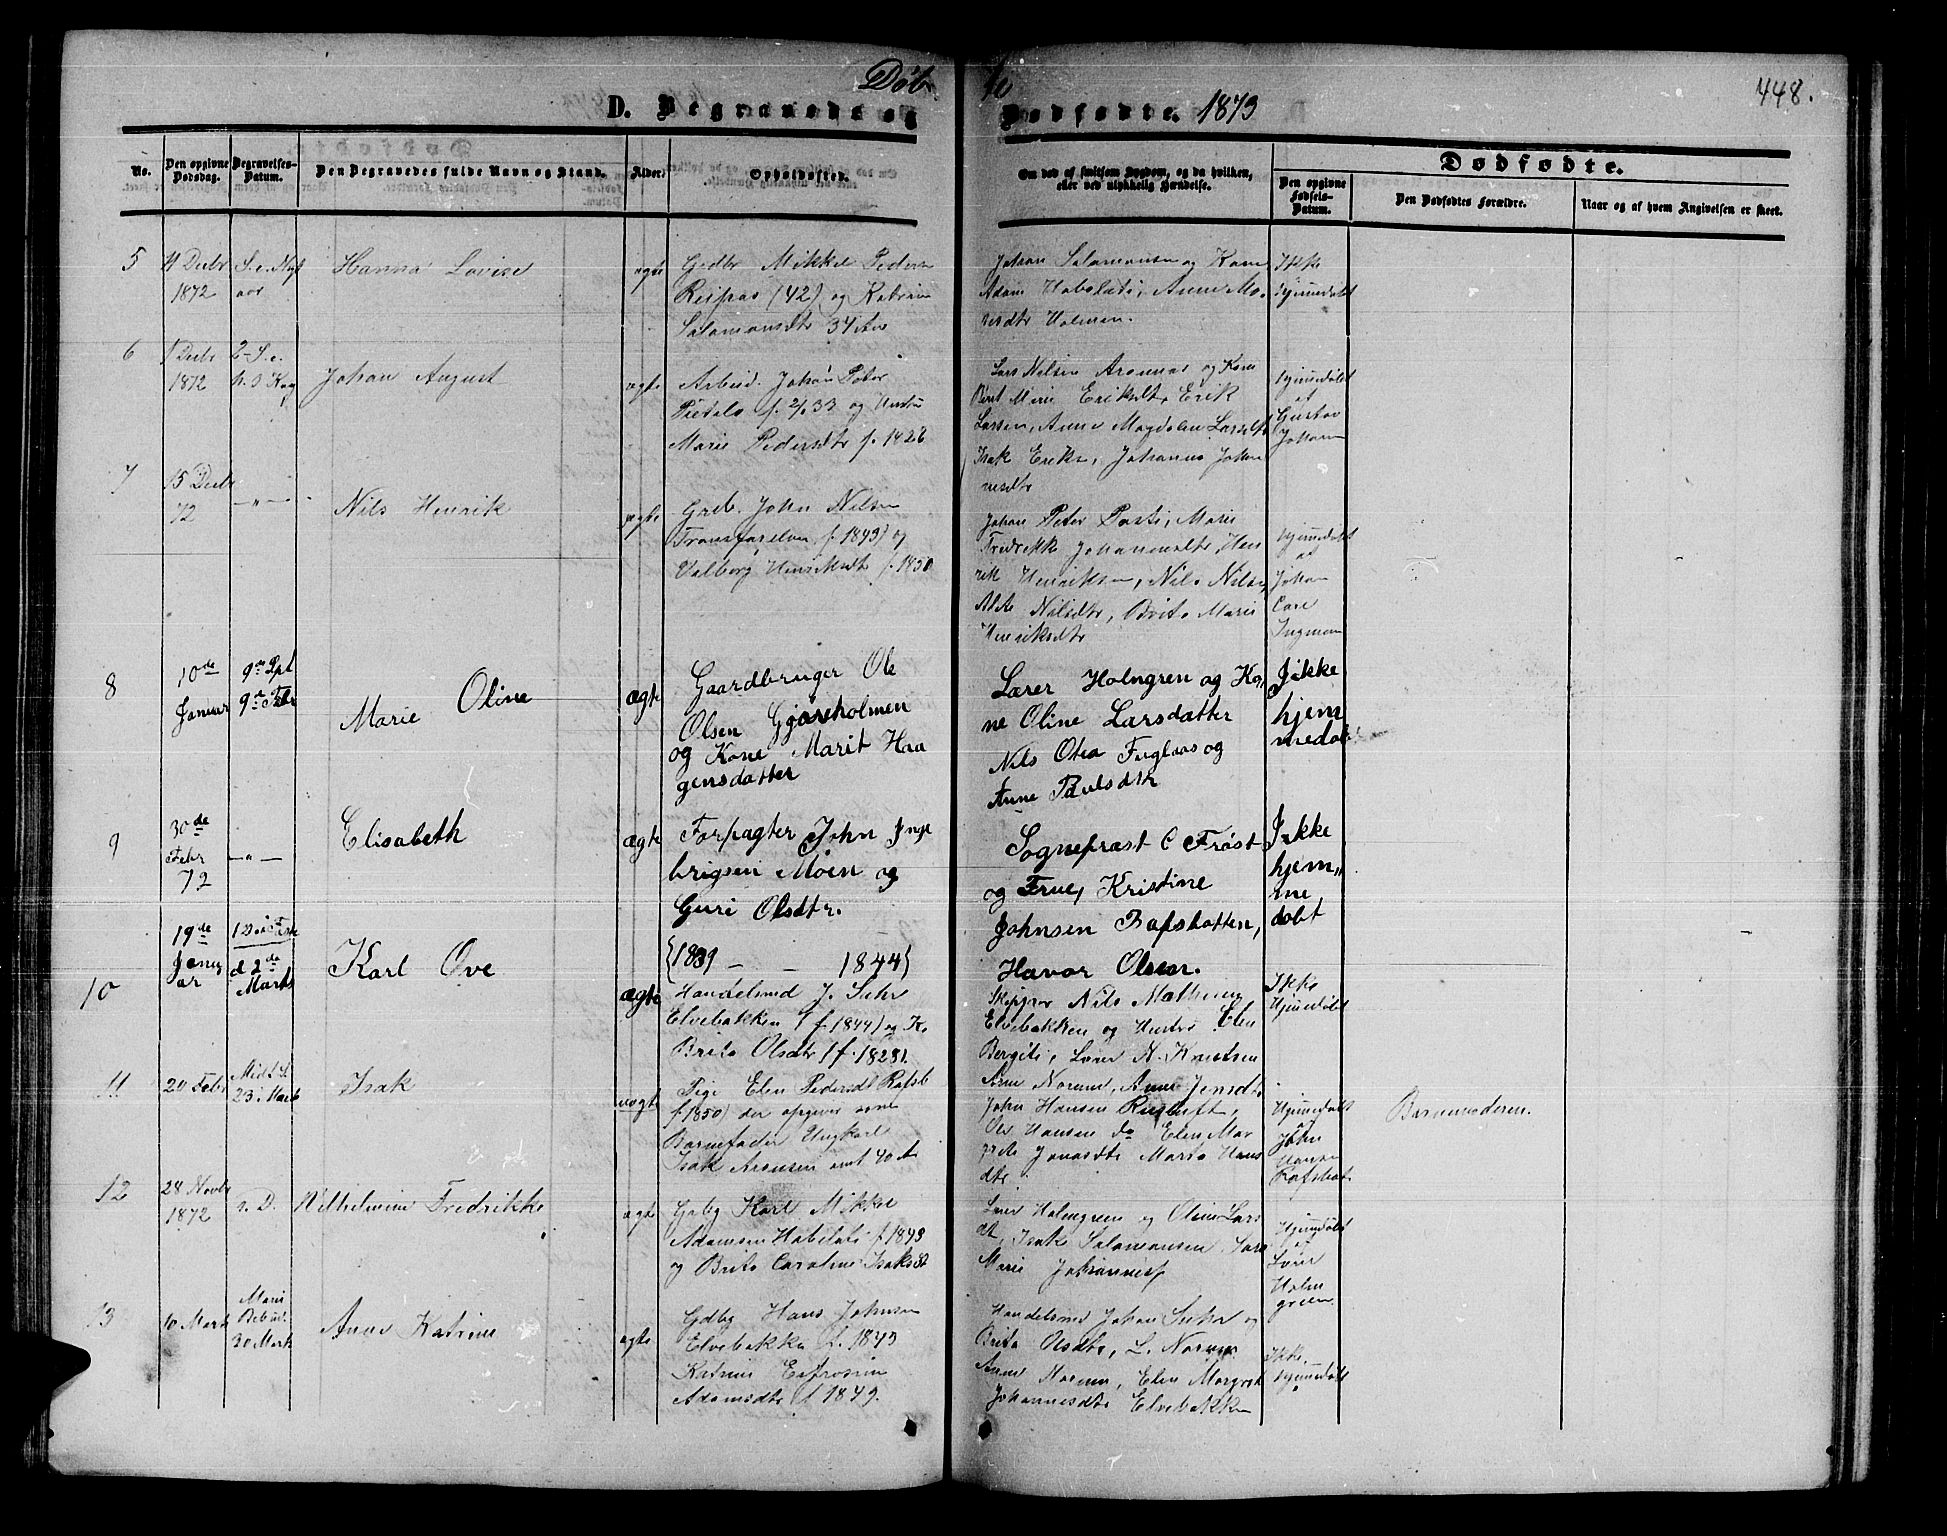 Døbte
448.
D. Begravede og Dødfødte. 1873
No.
Den opgivne Dødsdag.
Begravelses-Datum.
Den Begravedes fulde Navn og Stand.
Alder.
Opholdssted.
Om død af smitsom Sygdom, og da hvilken, eller ved ulykkelig Hændelse.
Dødfødte.
Den opgivne Fødsels-Datum.
Den Dødfødtes Forældre.
Naar og af hvem Angivelsen er skeet.
5
Decbr
1872
Hanna Lovise
ægte
Mikkel Peders
Reipas (42) og
Salamonsdtr 34 Aar
Johan Salamonsen og Kone
Adam Anne
Holmen.
Ikke
hjemmedøbt
6
1 Decbr
1872
2 S. e.
Johan August
ægte
Arbeid. Johan Peter
og Hustru
Marie Pedersdtr
Lars Nilsen Aronnæs og Kone
Berit Marie Eriksdtr, Erik
Larsen, Anne Magdalen Larsdtr
Isak Eriks, Johanna Johan
nesdtr
hjemmedøbt
af
Gustav
Johansen
7
15 Decbr
72
— " —
Nils Henrik
ægte
Grdb. John Nilsen
f. 1843) og
Valborg Henriksdtr f. 1850
Johan Peter Posti, Marie
Fredrikke Johannesdtr, Hen
rik Henriksen, Nils Nilsen,
Nilsdtr, Brita Marie
Henriksdtr
hjemmedøbt
af
Johan
Carl
Ingman
8
10de
Januar
9de Febr
Marie Oline
ægte
Gaardbruger Ole
Olsen Gjøreholmen
og Kone Marit Haa
gensdatter
Lærer Holmgren og Ko,
ne Oline Larsdatter
Nils Olsa Fuglaas og
Anne Paulsdtr
Ikke
hjem
medøbt
9
30de
Febr
72
— " —
Elisabeth
ægte
Forpagter John Inge
brigsen Moen og
Guri Olsdtr.
{1839 — — 1844}
Sognepræst C Frøst
og Frue, Kristine
Johnsen Rafsbotten,
Havor Olsen.
Ikke
hjem,,
me
døbt
10
19de
Janu
ar
1 S. i Faste
d 2de
Marts
Karl Ove
ægte
Handelsmd J. Suhr
Elvebakken (f. 1844) og K.
Brita Olsdtr (f. 1828).
Skipper Nils Mathisen
Elvebakken og Hustru Elen
Bergite, Lærer N. Knutsen
Arne Norum, Anne Jensdtr
Ikke
Hjemmedøbt
11
20 Febr
Midf. S.
23 Marts
Isak
uægte
Pige Elen Pedersdt Rafsb
f. 1850) der opgiver som
Barnefader Ungkarl
Isak Aronsen omt 40 A
John Hansen Rugluft,
Ole Hansen do Elen Mar
grete Jonasdtr Marta Hans
dtr
Hjemmedøbt
af
John
Hansen
Rafsbot.
Barnemoderen.
12
28 Novbr
1872
s. D.
Wilhelmine Fredrikke
ægte
Gdbg Karl Mikkel
Adamsen f. 1848
og Brita Caroline Isaksdt
Lærer Holmgreen og Oline Lars
dt, Isak Salamonsen, Sara
Marie Johannesd
Hjemmedøbt
af
Lærer
Holm
green
13
10 Marts
Mariæ
Bebud.
30 Marts
Anne Katrine
ægte
Gdbg Hans Johnsen
Elvebakken f. 1843
Katrine Eufrosine
Adamsdtr f 1849.
Handelsmd Johan Suhr og
Brita Olsdtr, L. Norum
Anne Norum, Elen Margret
Johannesdtr Elvebakken
Ikke
hjemmedøbt